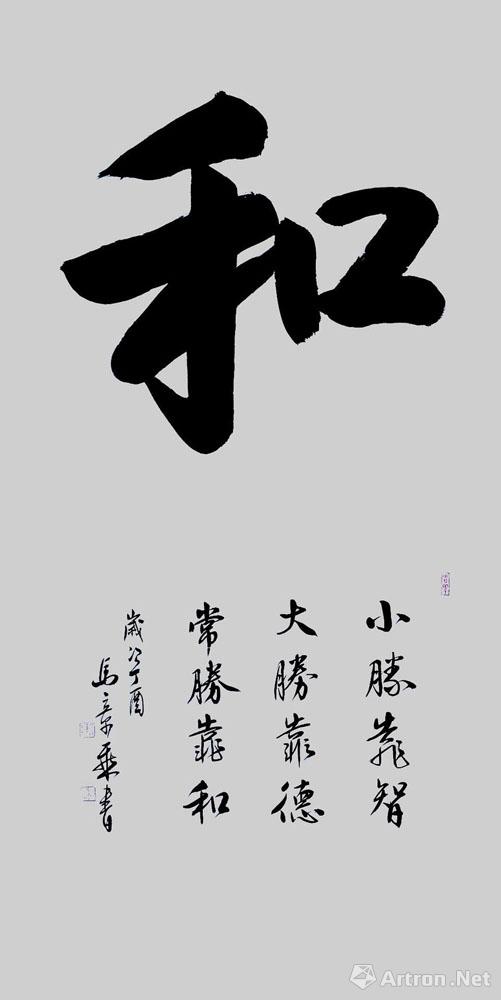 和
小勝靠智
大勝靠德
常勝靠和
歲次丁酉
馬京乘書
Artron.Net